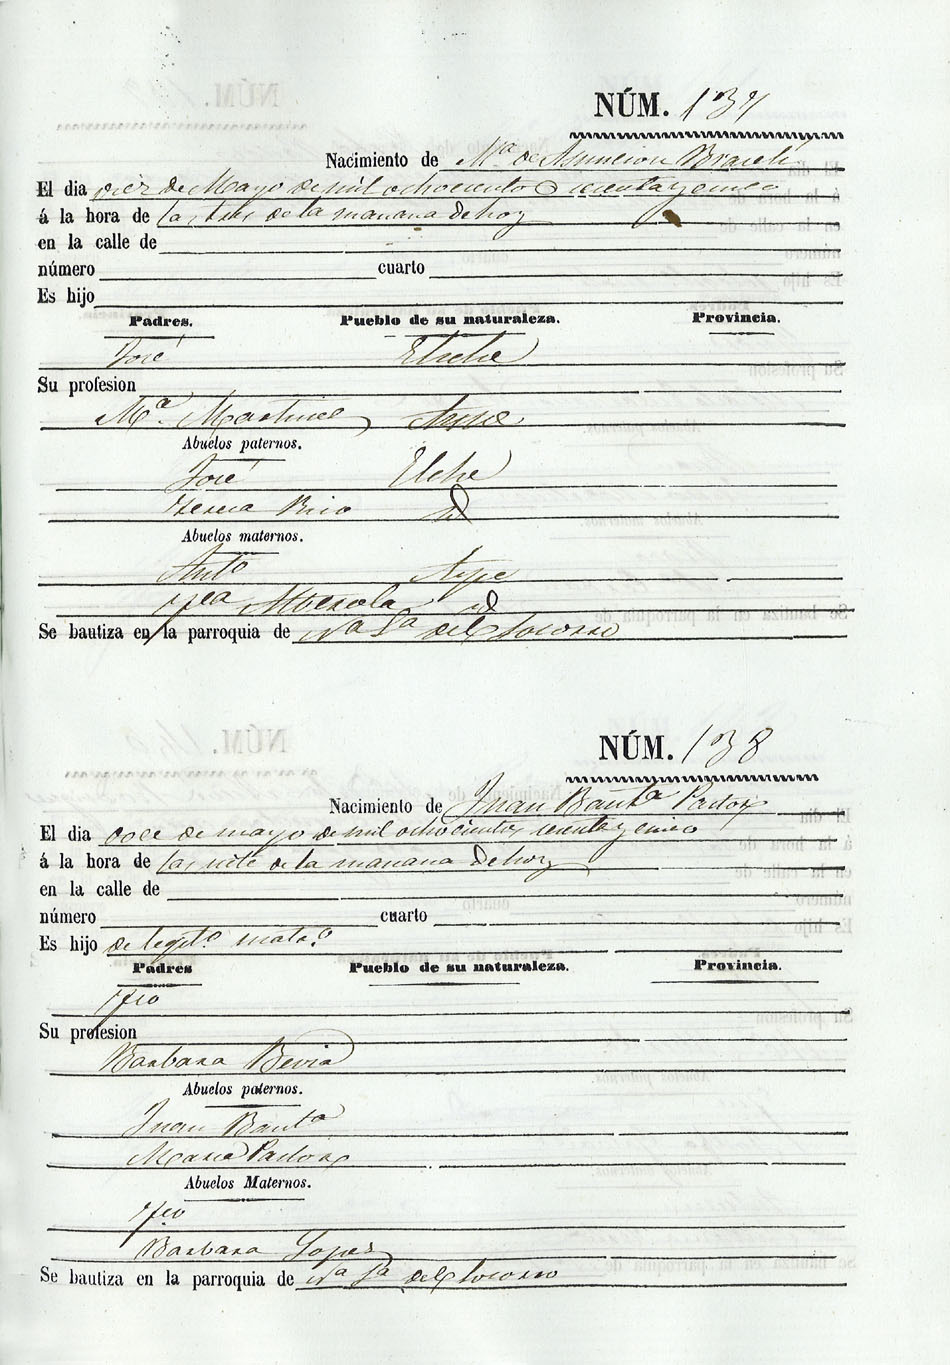 NÚM. 137
Nacimiento de Mª de Asuncion Braceli
El dia diez de Mayo de mil ochocientos sesenta y cinco
á la hora de las tres de la mañana de hoy
en la calle de
número cuarto
Es hijo
Padres. Pueblo de su naturaleza. Provincia.
José Elche
Su profesion
Mª. Martinez Aspe
Abuelos paternos.
José Elche
Teresa Rico id
Abuelos maternos.
Antº Aspe
Fca id
Se bautiza en la parroquia de Nª Sª del Socorro
NÚM. 138
Nacimiento de Juan Bautª Pastor
El dia doce de mayo de mil ochocientos sesenta y cinco
á la hora de las siete de la mañana de hoy
en la calle de
número cuarto
Es hijo de legitº matrº
Padres Pueblo de su naturaleza. Provincia.
Fco
Su profesion
Barbara Bevia
Abuelos paternos.
Juan Bautª
Maria Pastor
Abuelos Maternos.
Fco
Barbara Lopez
Se bautiza en la parroquia de Nª Sª del Socorro